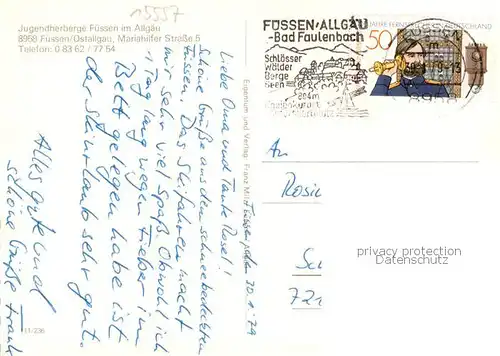 15557
Jugendherberge Füssen im Allgäu
8958 Füssen/Ostallgäu, Mariahilfer Straße 5
Telefon: 0 83 62 / 77 54
FÜSSEN/ALLGÄU
-Bad Faulenbach
Schlösser
Wälder
Berge
Seen
804m
50
8958
Füssen, den 20.1.79
Liebe Oma und Tante Rosel!
Schöne Grüße aus dem schneebedeckten
Füssen. Das Skifahren macht
mir sehr viel Spaß. Obwohl ich
1 Tag lang wegen Fieber im
Bett gelegen habe ist
der Skiurlaub sehr gut.
Alles gute und
schöne Grüße Frank
Eigentum und Verlag: Franz
11-236
An
Rosi
Sc
721
privacy protection
Datenschutz